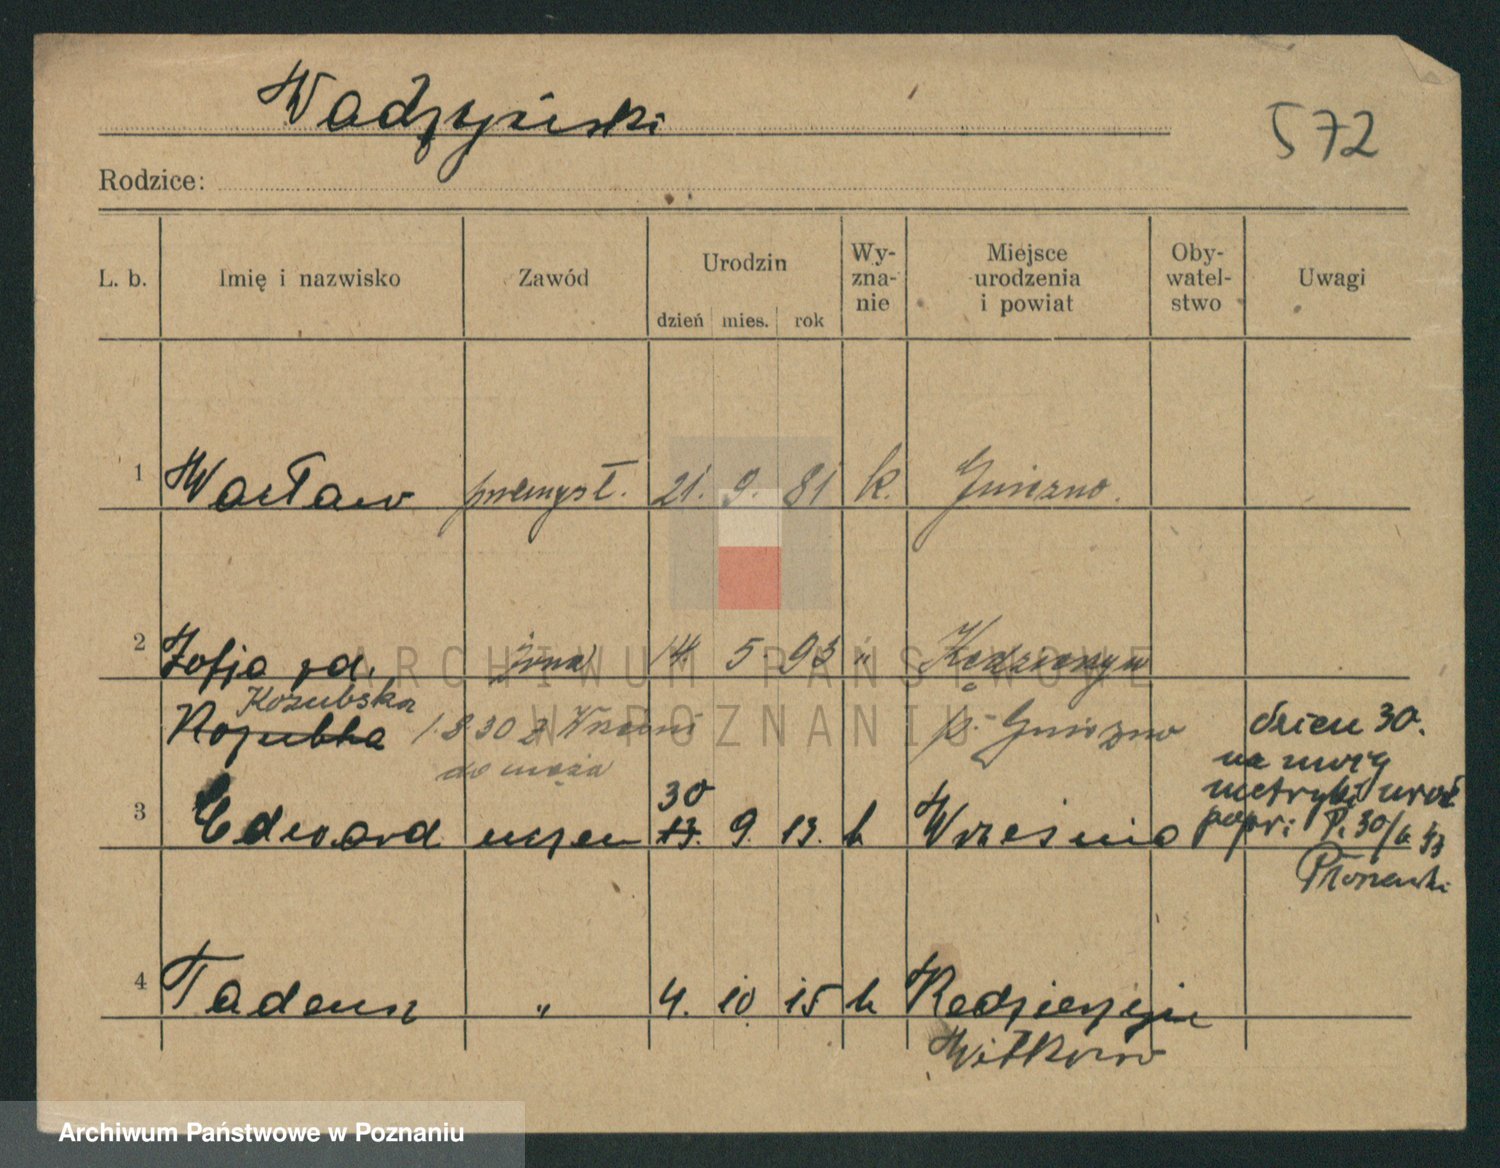 Wadzyński
572
Rodzice:
L. b. Imię i nazwisko Zawód Urodzin dzień mies. rok Wy-zna-nie Miejsce urodzenia i powiat Oby-watel-stwo Uwagi
1 Wacław przemysł. 21. 9. 81 k. Gniezno.
2 Zofja rd. żona 14. 5. 93 "
Kozubska
Kozubka 1.8.30 z
p. Gniezno
dzień 30.
do męża
na mocy
30
metryki urodz
3 Edward uczen 13. 9. 13. k Września
popr. 30/6
4 Tadeusz " 4. 10 15 k
Witkowo
ARCHIWUM PAŃSTWOWE
W POZNANIU
Archiwum Państwowe w Poznaniu